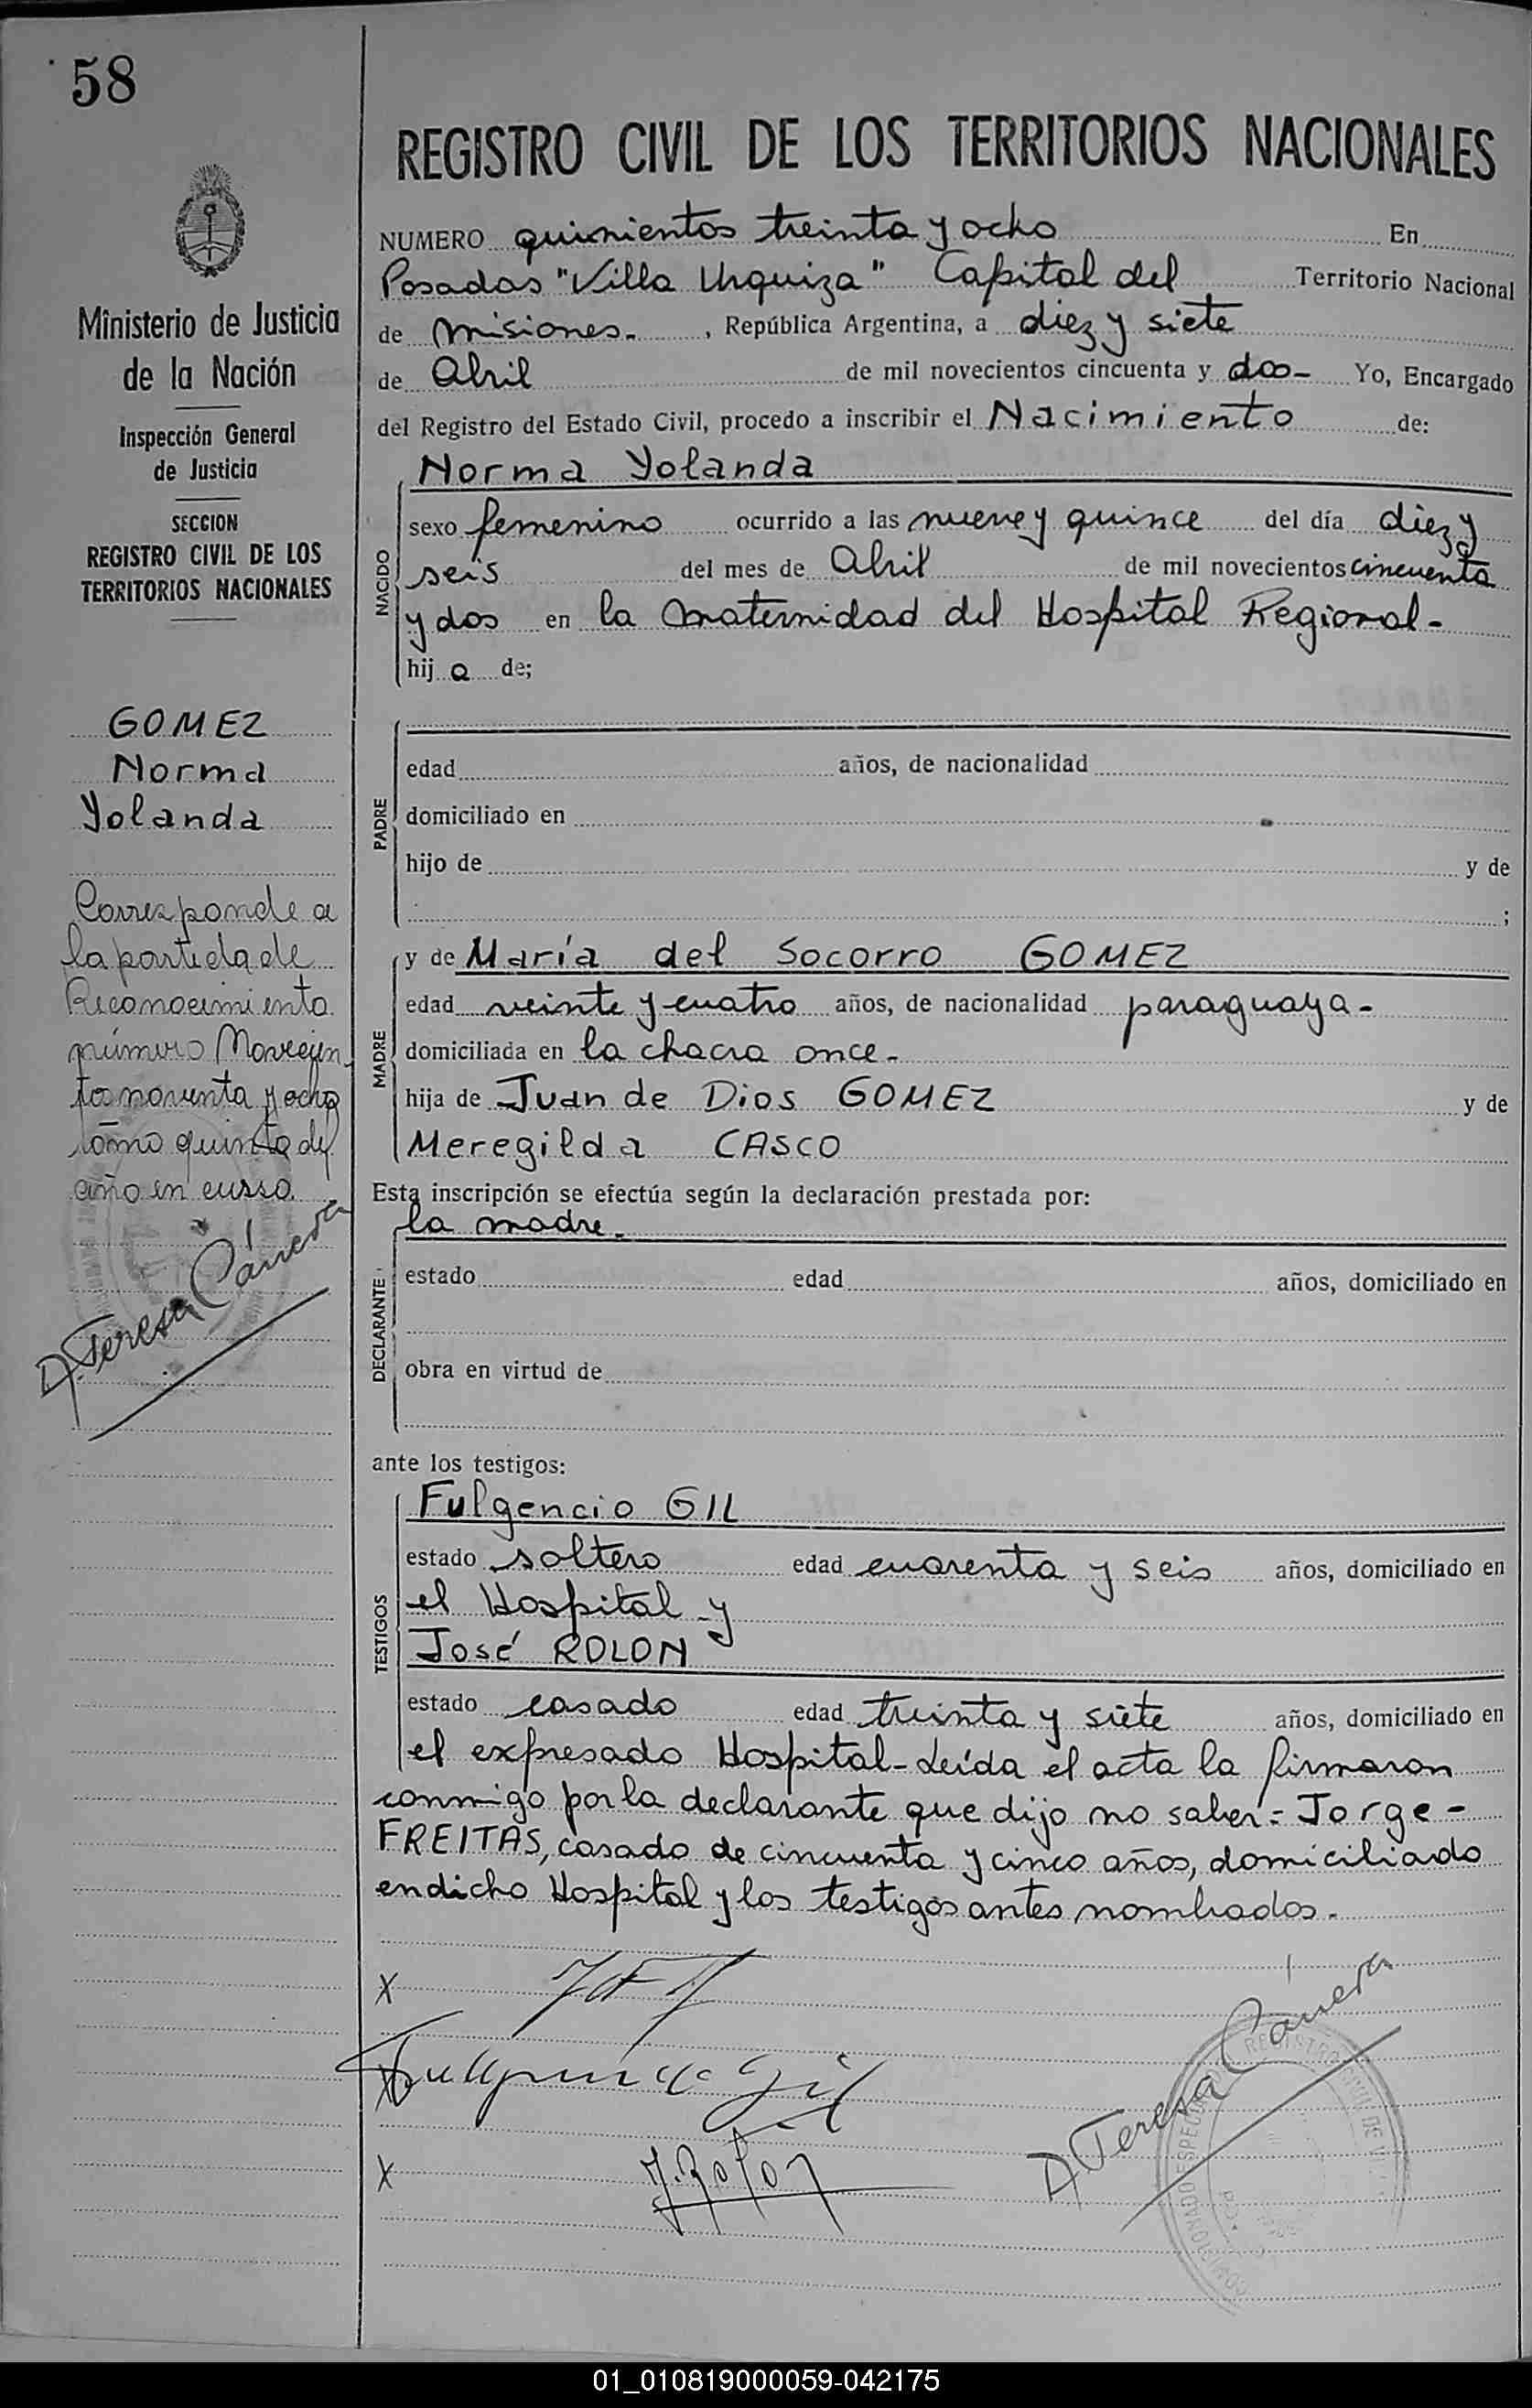 58
Ministerio de Justicia
de la Nación
Inspección General
de Justicia
SECCION
REGISTRO CIVIL DE LOS
TERRITORIOS NACIONALES
GOMEZ
Norma
Yolanda
Corresponde a
la partida de
Reconocimiento
número Novecien
tos noventa y ocho
tomo quinto del
año en curso.
D. Teresa Cámera
REGISTRO CIVIL DE LOS TERRITORIOS NACIONALES
NUMERO quinientos treinta y ocho En
Posadas "Villa Urquiza" Capital del Territorio Nacional
de Misiones.- , República Argentina, a diez y siete
de Abril de mil novecientos cincuenta y dos- Yo, Encargado
del Registro del Estado Civil, procedo a inscribir el Nacimiento de:
Norma Yolanda
NACIDO
sexo femenino ocurrido a las nueve y quince del día diez y
seis del mes de Abril de mil novecientos cincuenta
y dos en la Maternidad del Hospital Regional-
hij a de;
PADRE
edad años, de nacionalidad
domiciliado en
hijo de y de
;
MADRE
y de María del Socorro GOMEZ
edad veinte y cuatro años, de nacionalidad paraguaya-
domiciliada en la chacra once-
hija de Juan de Dios GOMEZ y de
Meregilda CASCO
Esta inscripción se efectúa según la declaración prestada por:
la madre.
DECLARANTE
estado edad años, domiciliado en
obra en virtud de
ante los testigos:
TESTIGOS
Fulgencio GIL
estado soltero edad cuarenta y seis años, domiciliado en
el Hospital y
José ROLON
estado casado edad treinta y siete años, domiciliado en
el expresado Hospital-Leída el acta la firmaron
conmigo por la declarante que dijo no saber:- Jorge-
FREITAS, casado de cincuenta y cinco años, domiciliado
en dicho Hospital y los testigos antes nombrados.-
X
Fulgencio Gil
X J. Rolon
D. Teresa Cámera
01_010819000059-042175